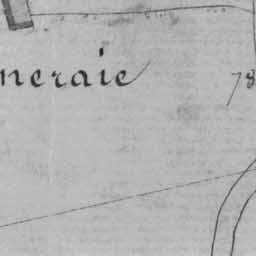 neraie
78